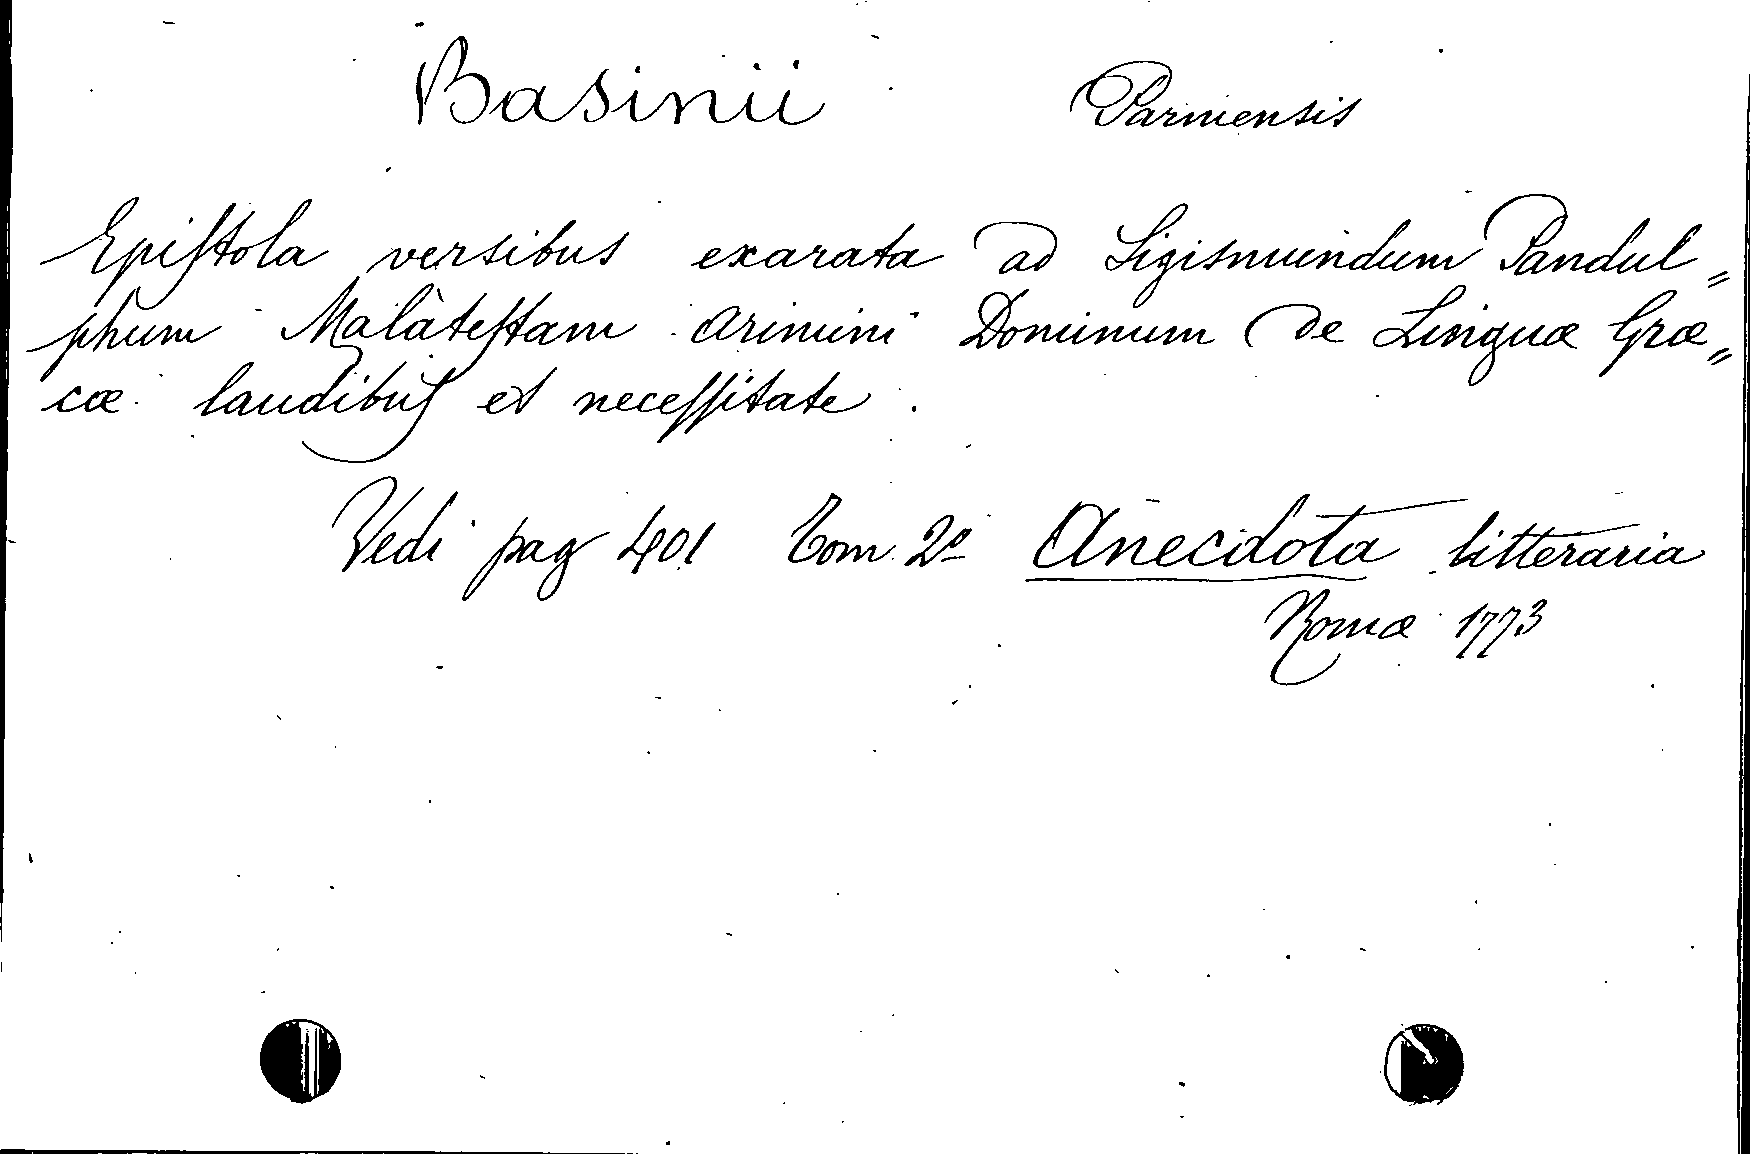 Basinii Parmensis
Epiſtola versibus exarata ad Sigismundum Pandul„
phum Malateſtam Arimini Dominum de Linguæ Græ„
cæ laudibus et neceſſitate.
Vedi pag 401 Tom. 2º Anecdota litteraria
Romæ 1773